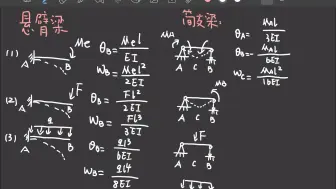 悬臂梁
简支梁
(1) A B Me
θB = Mel/EI
WB = Mel²/2EI
(2) A B F
θB = Fl²/2EI
WB = Fl³/3EI
(3) q A B
θB = ql³/6EI
WB = ql⁴/8EI
MA A C B
θA = MAl/3EI
θB = MAl/6EI
WC = MAl²/16EI
MB A C B
F A C B